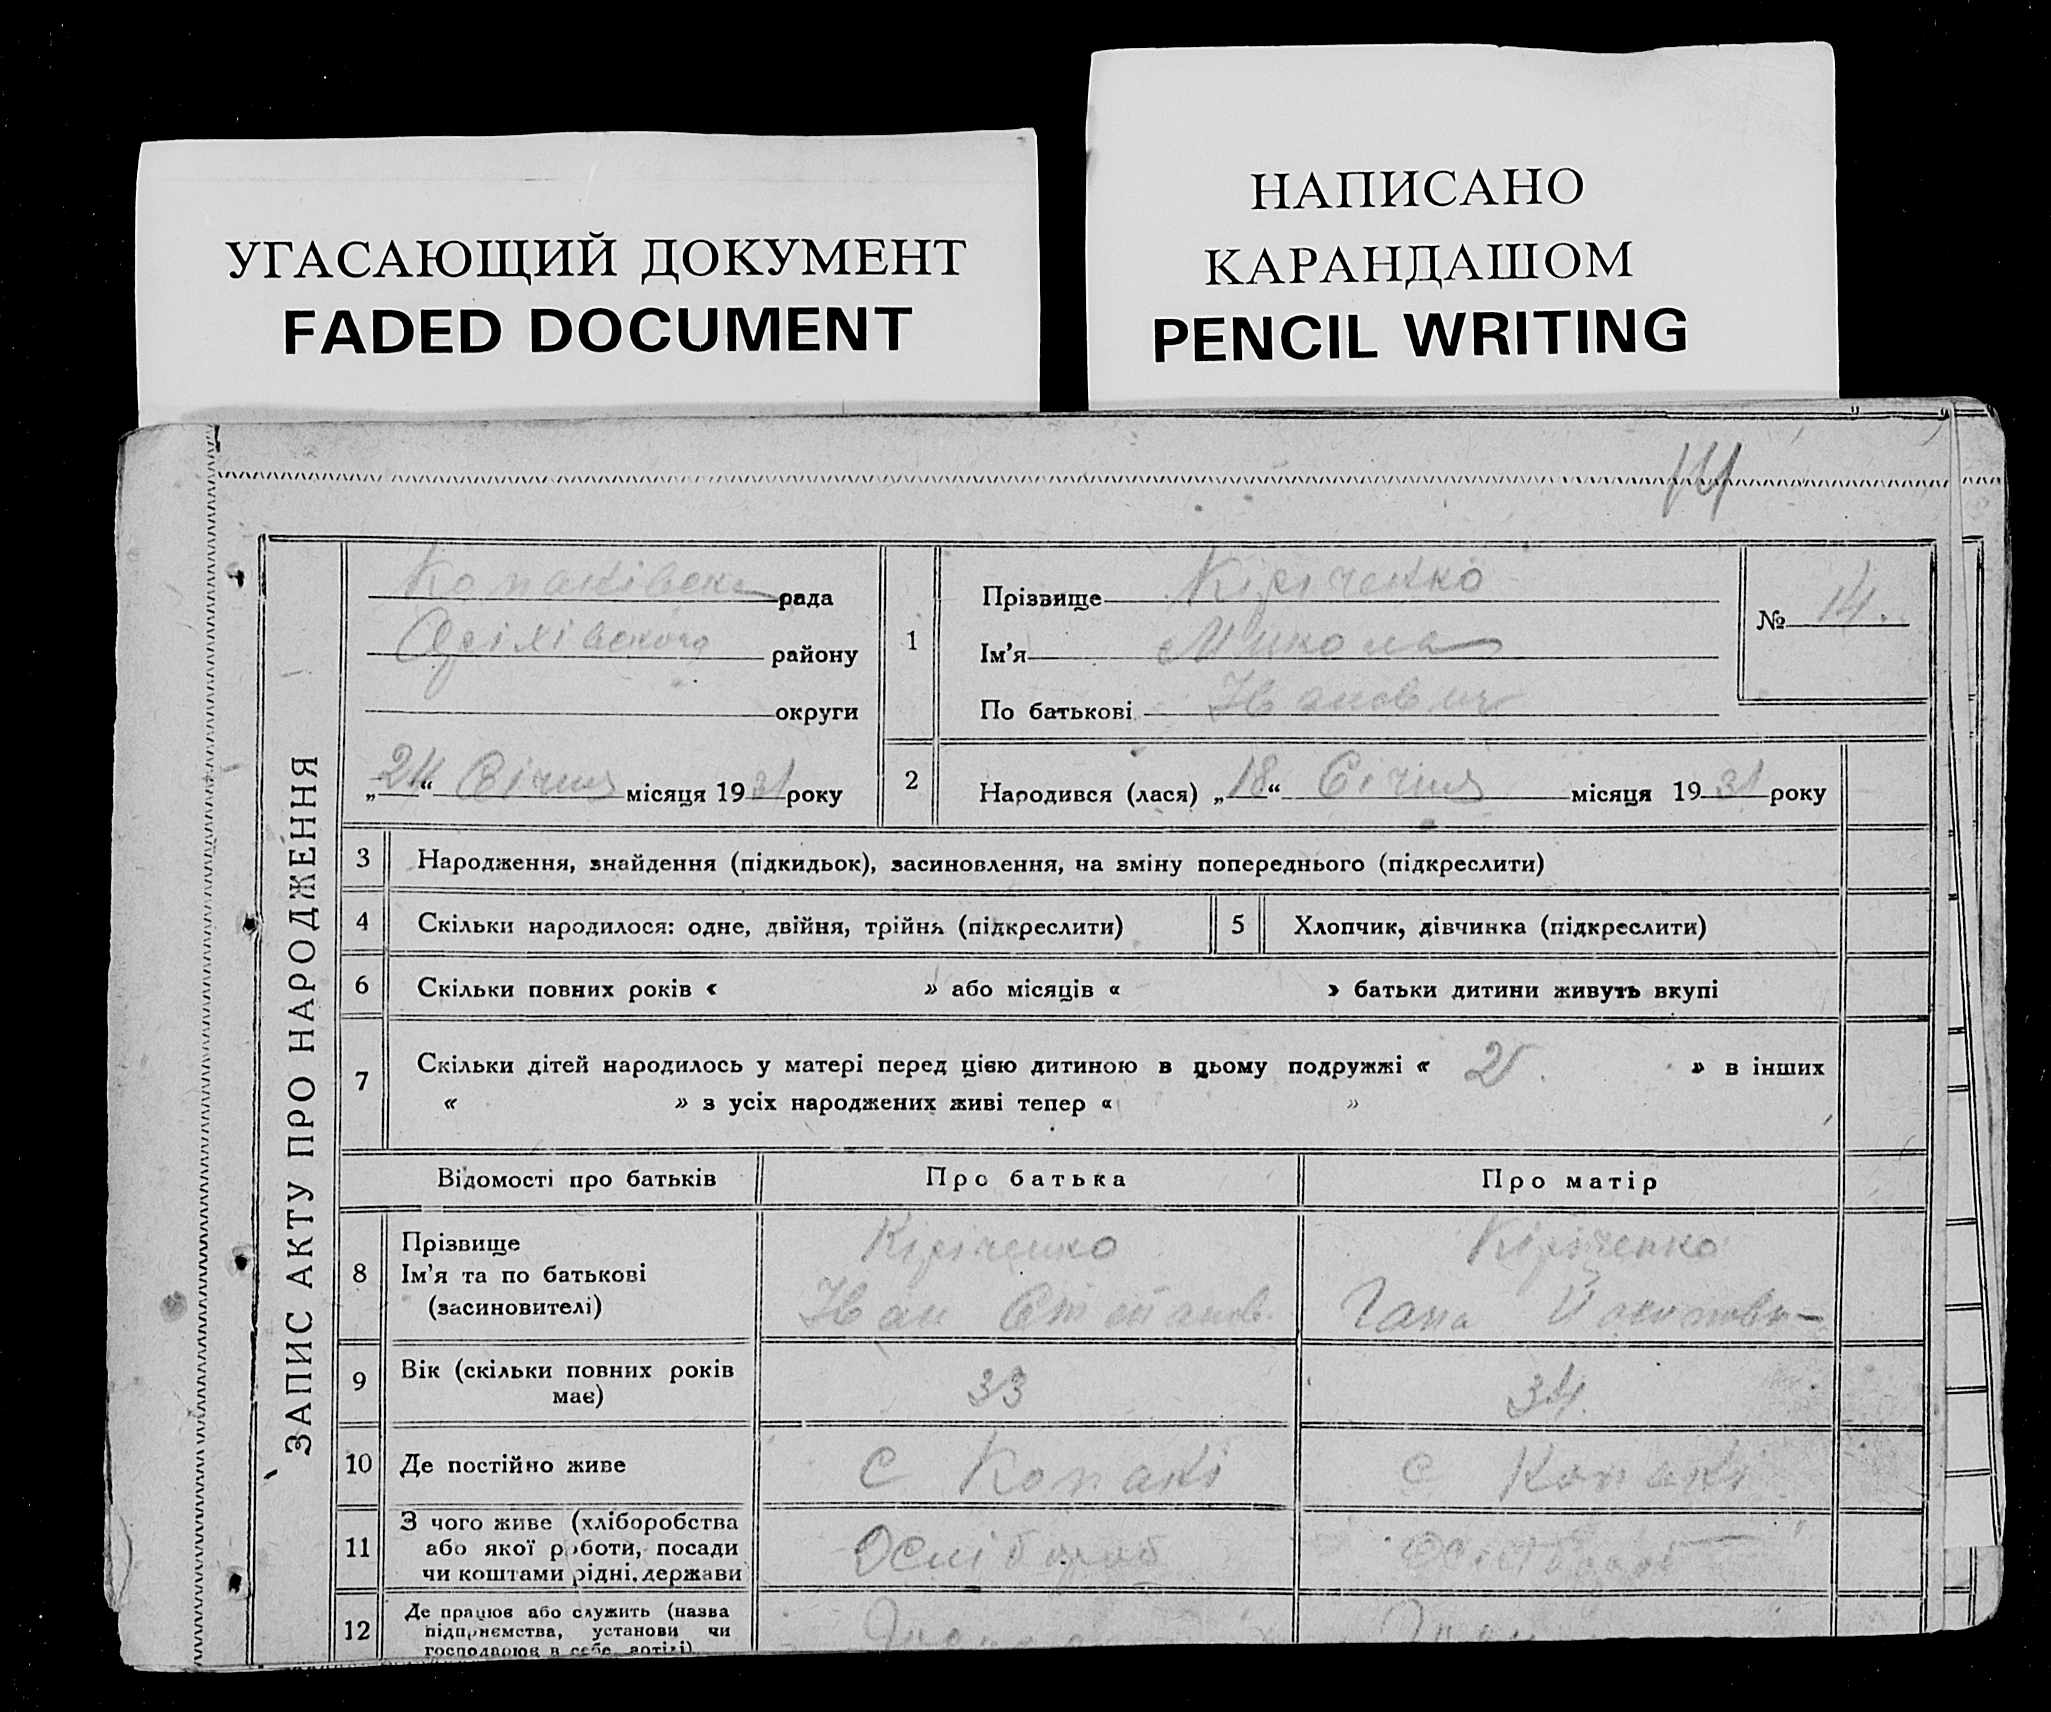 УГАСАЮЩИЙ ДОКУМЕНТ
FADED DOCUMENT
НАПИСАНО
КАРАНДАШОМ
PENCIL WRITING
14
ЗАПИС АКТУ ПРО НАРОДЖЕННЯ
Копаківська рада
Оріхівського району
округи
„24“ Січня місяця 1931 року
1
Прізвище Кіріченко
Ім'я Микола
По батькові Іванович
№ 14.
2
Народився (лася) „18“ Січня місяця 1931 року
3 Народження, знайдення (підкидьок), засиновлення, на зміну попереднього (підкреслити)
4 Скільки народилося: одне, двійня, трійня (підкреслити)
5 Хлопчик, дівчинка (підкреслити)
6 Скільки повних років « » або місяців « » батьки дитини живуть вкупі
7 Скільки дітей народилось у матері перед цією дитиною в цьому подружжі « 2 » в інших
« » з усіх народжених живі тепер « »
Відомості про батьків Про батька Про матір
8 Прізвище
Ім'я та по батькові
(засиновителі)
Кіріченко
Іван Степанов.
Кіріченко
Гана
9 Вік (скільки повних років
має)
33
34.
10 Де постійно живе
с Копакі
с Копакі
11 З чого живе (хліборобства
або якої роботи, посади
чи коштами рідні, держави
12 Де працює або служить (назва
підприємства, установи чи
господарює в себе вотілі)